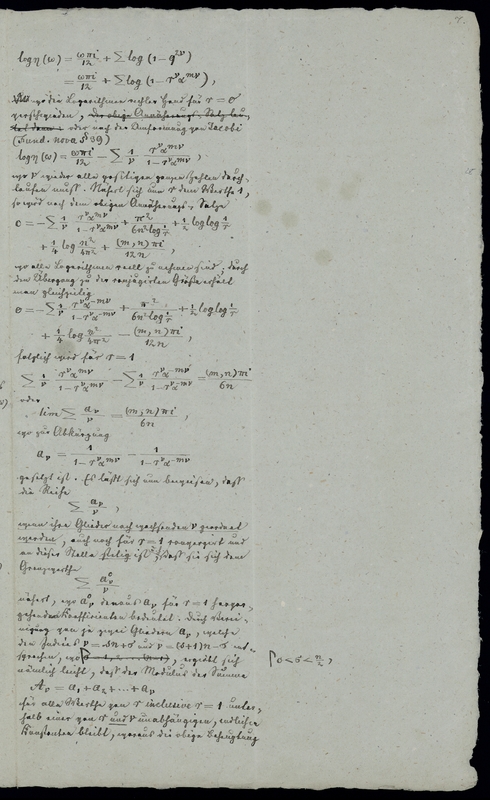 7.
log η(ω) = ωπi/12 + Σ log (1 − q^{2ν})
= ωπi/12 + Σ log (1 − r^ν α^{mν}),
wo die Logarithmen rechter Hand für r = 0
verschwinden, oder nach der Umformung von Jacobi
(Fund. nova § 39)
log η(ω) = ωπi/12 − Σ 1/ν r^ν α^{mν}/(1 − r^ν α^{mν}),
wo ν wieder alle positiven ganzen Zahlen durch-
laufen muß. Nähert sich nun r dem Werthe 1,
so wird nach dem obigen Annäherungs-Satze
0 = −Σ 1/ν r^ν α^{mν}/(1 − r^ν α^{mν}) + π²/(6n² log 1/r) + 1/2 log log 1/r
+ 1/4 log n²/4π² + (m, n)πi/12n,
wo alle Logarithmen reell zu nehmen sind; durch
den Übergang zu der conjugirten Größe erhält
man gleichzeitig
0 = −Σ 1/ν r^ν α^{−mν}/(1 − r^ν α^{−mν}) + π²/(6n² log 1/r) + 1/2 log log 1/r
+ 1/4 log n²/4π² − (m, n)πi/12n,
folglich wird für r = 1
Σ 1/ν r^ν α^{mν}/(1 − r^ν α^{mν}) − Σ 1/ν r^ν α^{−mν}/(1 − r^ν α^{−mν}) = (m, n)πi/6n
oder
lim Σ a_ν/ν = (m, n)πi/6n,
wo zur Abkürzung
a_ν = 1/(1 − r^ν α^{mν}) − 1/(1 − r^ν α^{−mν})
gesetzt ist. Es läßt sich nun beweisen, daß
die Reihe
Σ a_ν/ν,
wenn ihre Glieder nach wachsenden ν geordnet
werden, auch noch für r = 1 convergirt und
an dieser Stelle stetig ist, daß sie sich dem
Grenzwerthe
Σ a⁰_ν/ν
nähert, wo a⁰_ν den aus a_ν für r = 1 hervor-
gehenden Koeffizienten bedeutet. Durch Verei-
nigung von je zwei Gliedern a_ν, welche
den Indices ν = sn + σ und ν = (s+1)n − σ ent-
sprechen, wo 0 < σ < n/2, ergiebt sich
nämlich leicht, daß der Modulus der Summe
A_ν = a₁ + a₂ + ... + a_ν
für alle Werthe von r inclusive r = 1 unter-
halb einer von r und ν unabhängigen, endlichen
Konstanten bleibt, woraus die obige Behauptung